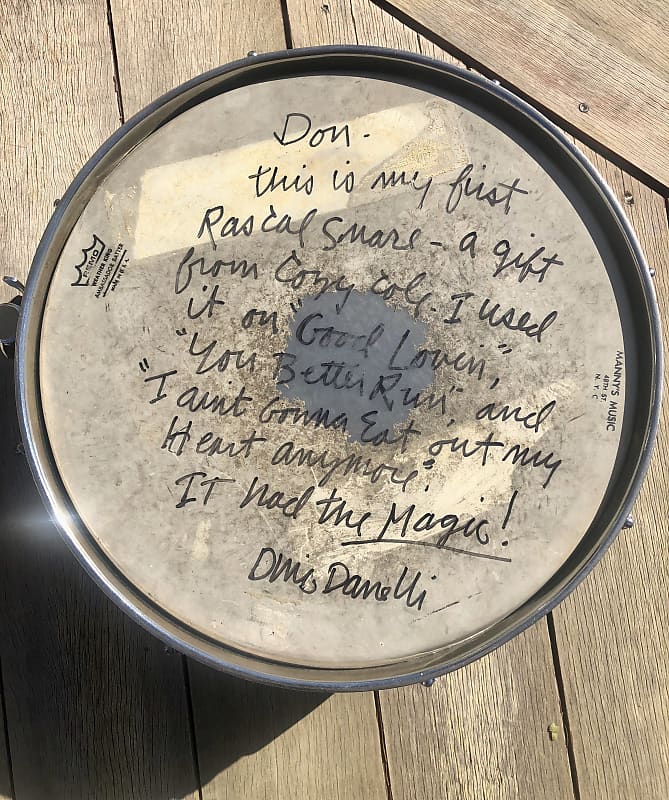 Don.
this is my first
Rascal Snare - a gift
from Cozy Cole. I used
it on "Good Lovin",
"You Better Run", and
"I aint Gonna Eat out my
Heart anymore".
IT had the Magic!
Dino Danelli
REMO
WEATHER KING
AMBASSADOR BATTER
MADE IN U.S.A.
MANNY'S MUSIC
48TH ST.
N. Y. C.